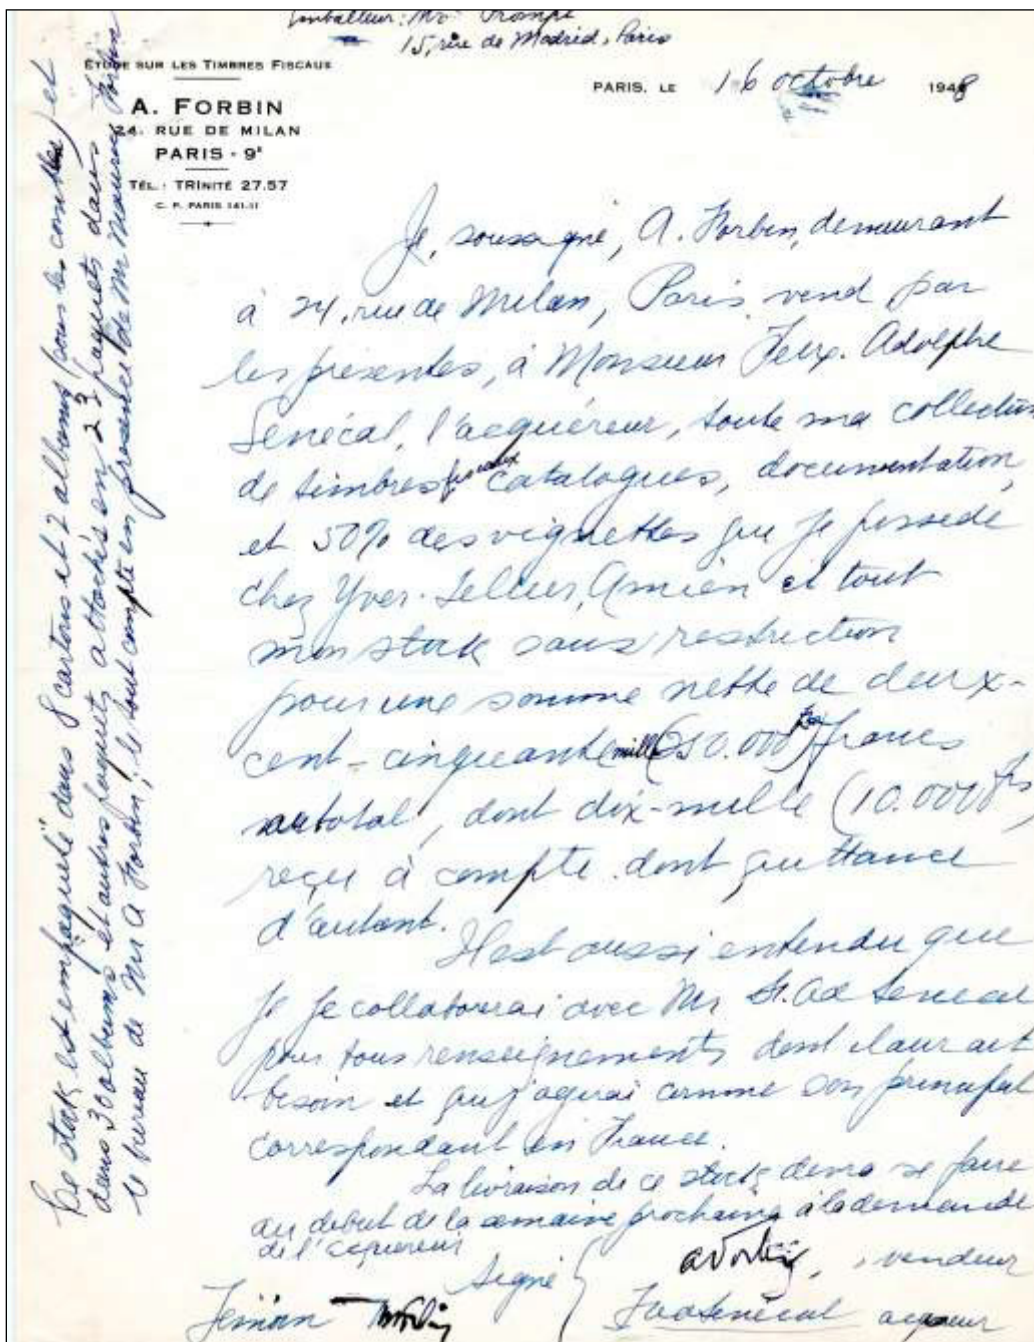 emballeur: Mr Trompe
15, rue de Madrid, Paris
ÉTUDE SUR LES TIMBRES FISCAUX
A. FORBIN
24. RUE DE MILAN
PARIS - 9e
TÉL. : TRINITÉ 27.57
C. P. PARIS 141.11
PARIS, LE 16 octobre 1948
Je, soussigné, A. Forbin, demeurant
à 24, rue de Milan, Paris, vend par
les présentes, à Monsieur Adolphe
Senécal, l'acquéreur, toute ma collection
de timbres fiscaux catalogues, documentation,
et 50% des vignettes que je possède
chez Yver. Tellier, Amien et tout
mon stock sans restriction
pour une somme nette de deux-
cent-cinquante mille (250.000) francs
au total, dont dix-mille (10.000 frs)
reçu à compte dont quittance
d'autant.
Il est aussi entendu que
je je collaborerai avec Mr Ad Senecal
pour tous renseignements dont il aurait
besoin et que j'agirai comme son principal
correspondant en France.
La livraison de ce stock devra se faire
au debut de la semaine prochaine à la demande
de l'acquereur
signé
AForbin, vendeur
Témoin
FAdSenécal acqueur
Ce stock est empaqueté dans 8 cartons et 2 albums (sous les comtes) et
dans 30 albums et autres paquets attachés en 23 paquets dans
le bureau de Mr A Forbin; le tout compte en presence de Mr Maurice Forbin